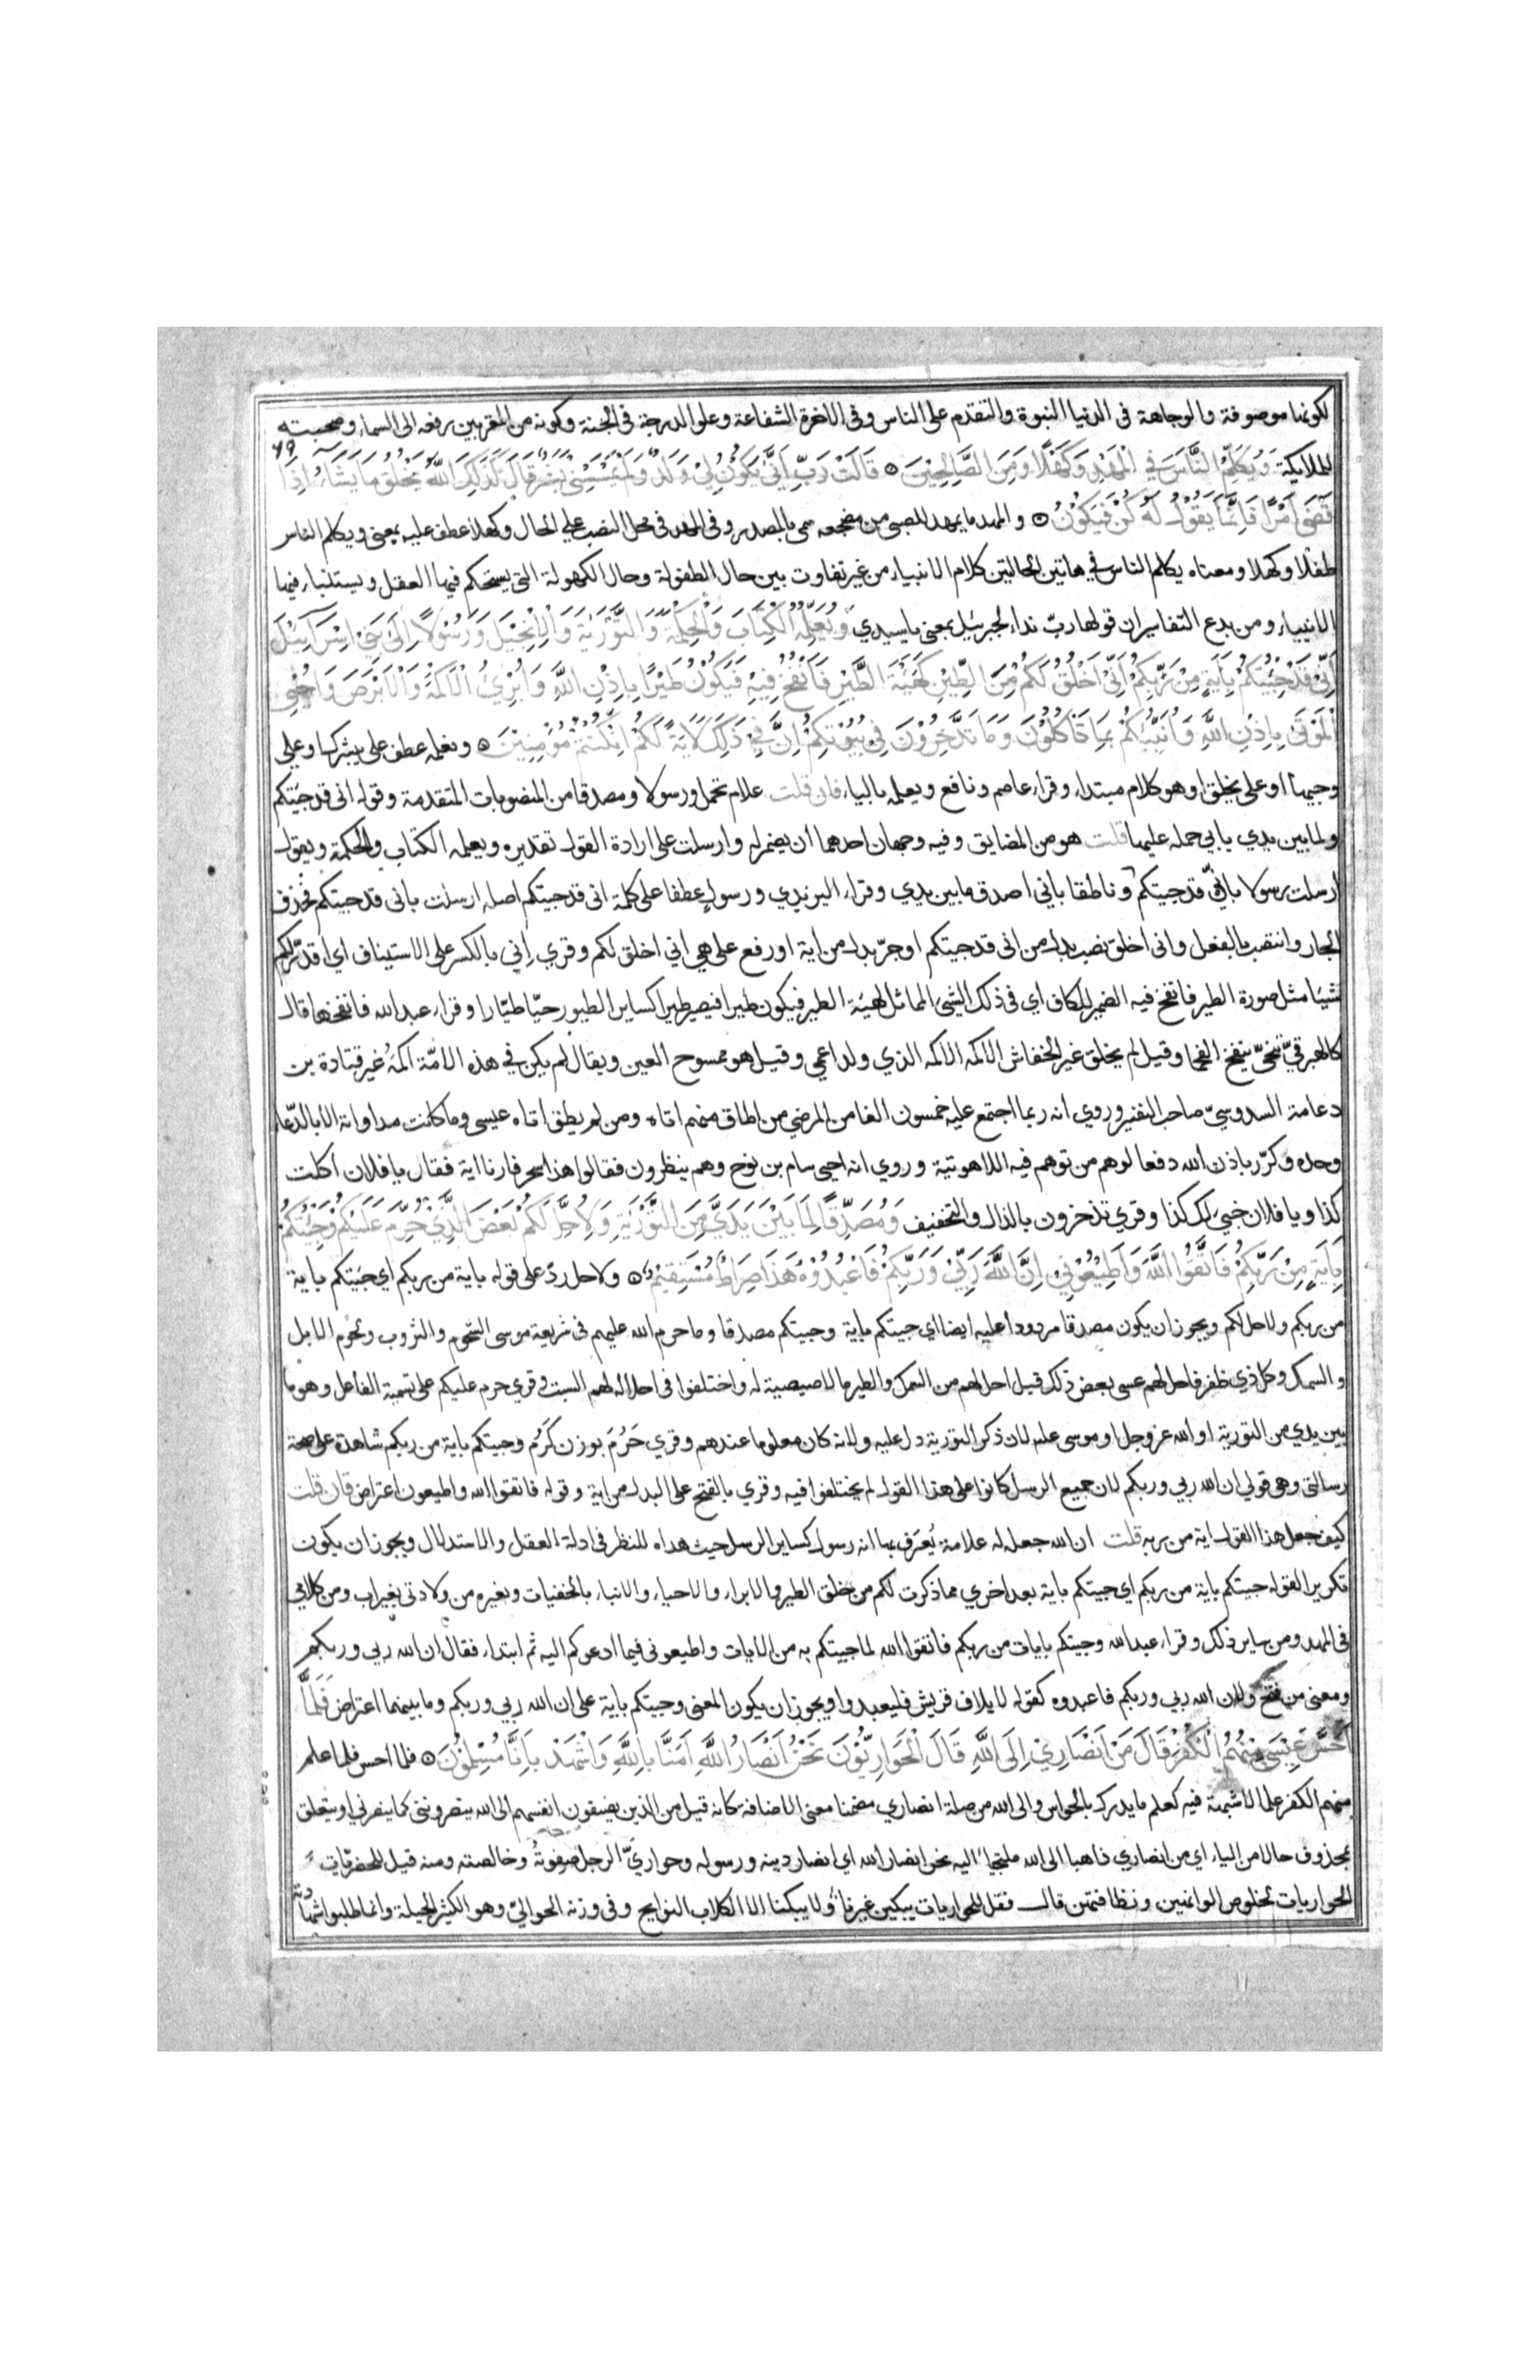 لكونها موصوفة والوجاهة فى الدنيا النبوة والتقدم على الناس وفى الاخرة الشفاعة وعلو الدرجة فى الجنة وكونه من المقربين رفعه الى السماء وصحبته
للملايكة وَيُكَلِّمُ النَّاسَ فِي الْمَهْدِ وَكَهْلًا وَمِنَ الصَّالِحِيْنَ ۞ قَالَتْ رَبِّ اَنَّى يَكُوْنُ لِيْ وَلَدٌ وَلَمْ يَمْسَسْنِيْ بَشَرٌ قَالَ كَذَلِكَ اللهُ يَخْلُقُ مَا يَشَاءُ اِذَا
قَضَى اَمْرًا فَاِنَّمَا يَقُوْلُ لَهُ كُنْ فَيَكُوْنُ ۞ والمهد ما يمهد للصبى من مضجعه سمى بالمصدر وفى المهد فى محل النصب على الحال وكهلا عطف عليه بمعنى ويكلم الناس
طفلا وكهلا ومعناه يكلم الناس في هاتين الحالتين كلام الانبياء من غير تفاوت بين حال الطفولة وحال الكهولة التى يستحكم فيها العقل ويستنباء فيها
الانبياء ومن بدع التفاسير ان قولها ربّ نداء لجبرئيل بمعنى ياسيدي وَيُعَلِّمُهُ الْكِتَابَ وَالْحِكْمَةَ وَالتَّوْرَيةَ وَالْاِنْجِيْلَ وَرَسُوْلًا اِلَى بَنِي اِسْرَآئِيْلَ
اَنِّي قَدْ جِئْتُكُمْ بِاَيَةٍ مِنْ رَبِّكُمْ اَنِّي اَخْلُقُ لَكُمْ مِنَ الطِّيْنِ كَهَيْئَةِ الطَّيْرِ فَاَنْفُخُ فِيْهِ فَيَكُوْنُ طَيْرًا بِاِذْنِ اللَّهِ وَاُبْرِئُ الْاَكْمَهَ وَالْاَبْرَصَ وَاُحْيِي
الْمَوْتَى بِاِذْنِ اللَّهِ وَاُنَبِّئُكُمْ بِمَا تَاْكُلُوْنَ وَمَا تَدَّخِرُوْنَ فِي بُيُوْتِكُمْ اِنَّ فِي ذَلِكَ لَاَيَةً لَكُمْ اِنْ كُنْتُمْ مُؤْمِنِيْنَ ۞ ونعلمه عطف على يبشرك او على
وجيها او على يخلق او هو كلام مبتداء وقراء عاصم ونافع ويعلمه بالياء فان قلت علام تحمل ورسولا ومصدقا من المنصوبات المتقدمة وقوله انى قد جئتكم
ولما بين يدي يابى حمله عليها قلت هو من المضايق وفيه وجهان احدهما ان يضمر له وارسلت على ارادة القول تقديره ويعلمه الكتاب والحكمة ويقول
ارسلت رسولا بانّي قد جيتكم وناطقا بانى اصدق ما بين يدي وقراء اليزيدي ورسولٍ عطفا على كلمة انى قد جيتكم اصله ارسلت بانى قد جيتكم فحذف
الجار وانتصب بالفعل وانى اخلق نصب بدل من انى قد جيتكم او جرّ بدل من اية او رفع على هي اني اخلق لكم وقري اِني بالكسر على الاستيناف اي اقدّر لكم
شيئا مثل صورة الطير فانفخ فيه الضمير للكاف اي فى ذلك الشىء المماثل لهيئة الطير فيكون طيرا فيصير طيرا كساير الطيور حيّا طيّارا وقراء عبدالله فانفخها قال
كالهبرقيّ تنحّى ينفخ الفحما وقيل لم يخلق غير الخفاش الاكمه الاكمه الذي ولد اعمي وقيل هو ممسوح العين ويقال لم يكن في هذه الامّة اكمهُ غير قتادة بن
دعامة السدوسيّ صاحب التفسير وروي انه ربما اجتمع عليه خمسون الفا من المرضي من اطاق منهم اتاه ومن لم يطق اتاه عيسى وما كانت مداواته الا بالدّعاء
وحده وكرّر باذن الله دفعا لوهم من توهم فيه اللاهوتية وروي انه احيى سام بن نوح وهم ينظرون فقالوا هذا سحر فارنا اية فقال يا فلان اكلت
كذا ويا فلان خبئ لك كذا وقري تذخرون بالذال والتخفيف وَمُصَدِّقًا لِمَا بَيْنَ يَدَيَّ مِنَ التَّوْرَيةِ وَلِاُحِلَّ لَكُمْ بَعْضَ الَّذِيْ حُرِّمَ عَلَيْكُمْ وَجِئْتُكُمْ
بِاَيَةٍ مِنْ رَبِّكُمْ فَاتَّقُوا اللَّهَ وَاَطِيْعُوْنِ اِنَّ اللَّهَ رَبِّيْ وَرَبُّكُمْ فَاعْبُدُوْهُ هَذَا صِرَاطٌ مُسْتَقِيْمٌ ۞ ولاحل ردّ على قوله باية من ربكم اي جئتكم باية
من ربكم ولاحل لكم ويجوز ان يكون مصدقا مردودا عليه ايضا اي جيتكم باية وجيتكم مصدقا وما حرم الله عليهم فى شريعة موسى الشحوم والثروب ولحوم الابل
والسمك وكل ذي ظفر فاحل لهم عيسى بعض ذلك قيل احل لهم من السمك والطير ما لا صيصية له واختلفوا فى احلاله لهم السبت وقري حرم عليكم على تسمية الفاعل وهو ما
بين يدي من التورية او الله عز وجل او موسى عليه لان ذكر التورية دل عليه ولانه كان معلوما عندهم وقري حَرُمَ بوزن كَرُم وجيتكم باية من ربكم شاهدة على صحة
رسالتى وهى قولي ان الله ربي وربكم لان جميع الرسل كانوا على هذا القول لم يختلفوا فيه وقري بالفتح على البدل من اية وقوله فاتقوا الله واطيعون اعتراض فان قلت
كيف جعل هذا القول اية من ربه قلت ان الله جعله له علامة يُعرَف بها انه رسول كساير الرسل حيث هداه للنظر فى ادلة العقل والاستدلال ويجوز ان يكون
تكريرا لقوله جيتكم باية من ربكم اي جيتكم باية بعد اخري مما ذكرت لكم من خلق الطير والابراء والاحياء والانباء بالخفيات وبغيره من ولادتى بغير اب ومن كلامي
فى المهد ومن ساير ذلك وقراء عبدالله وجيتكم بايات من ربكم فاتقوا الله لما جيتكم به من الايات واطيعونى فيما ادعوكم اليه ثم ابتداء فقال ان الله ربي وربكم
ومعنى من فتح ولان الله ربي وربكم فاعبدوه كقوله لايلاف قريش فليعبدوا ويجوز ان يكون المعنى وجيتكم باية على ان الله ربي وربكم وما بينهما اعتراض فَلَمَّا
اَحَسَّ عِيْسَى مِنْهُمُ الْكُفْرَ قَالَ مَنْ اَنْصَارِيْ اِلَى اللَّهِ قَالَ الْحَوَارِيُّوْنَ نَحْنُ اَنْصَارُ اللَّهِ اَمَنَّا بِاللَّهِ وَاشْهَدْ بِاَنَّا مُسْلِمُوْنَ ۞ فلما احس فلما علم
منهم الكفر علما لا شبهة فيه كعلم ما يدرك بالحواس والى الله من صلة انصاري مضمنا معنى الاضافة كانه قيل من الذين يضيفون انفسهم الى الله ينصروننى كما ينصرني او يتعلق
بمحذوف حالا من الياء اي من انصاري ذاهبا الى الله ملتجيا اليه نحن انصار الله اي انصار دينه ورسوله وحواريّ الرجل صفوتُه وخالصته ومنه قيل للحضريّات
الحواريات لخلوص الوانهنّ ونظافتهن قال فقل للحواريات يبكين غيرنا ولا يبكنا الا الكلاب النوابح وفى وزنه الحواليّ وهو الكثير الحيلة وانما طلبوا شهادته